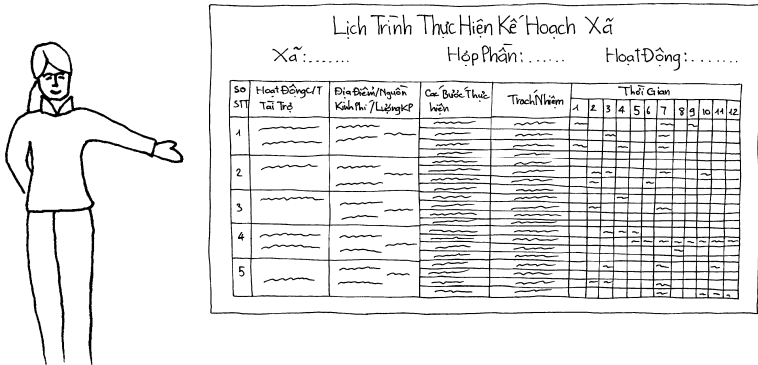 Lịch Trình Thực Hiện Kế Hoạch Xã
Xã:....... Hợp Phần:...... Hoạt Động:.......
Số STT Hoạt Động C/T Tài Trợ Địa Điểm/Nguồn Kinh Phí/Lượng KP Các Bước Thực hiện Trách Nhiệm Thời Gian
1 2 3 4 5 6 7 8 9 10 11 12
1
2
3
4
5